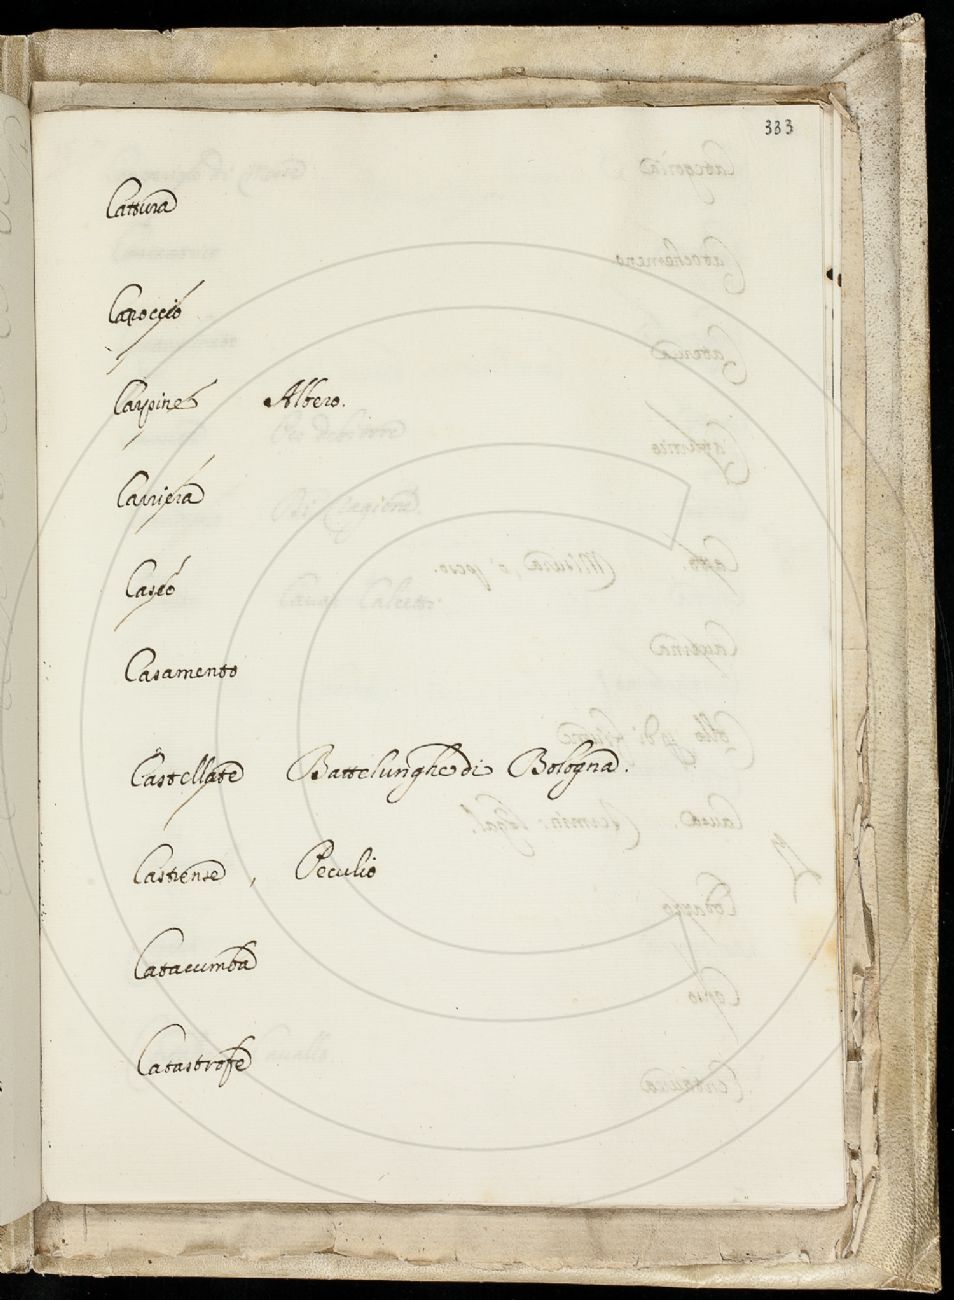 333
Cattura
Capoccio
Carpine Albero.
Carriera
Caseo
Casamento
Castellate Battelunghe di Bologna.
Castrense, Peculio
Catacumba
Catastrofe